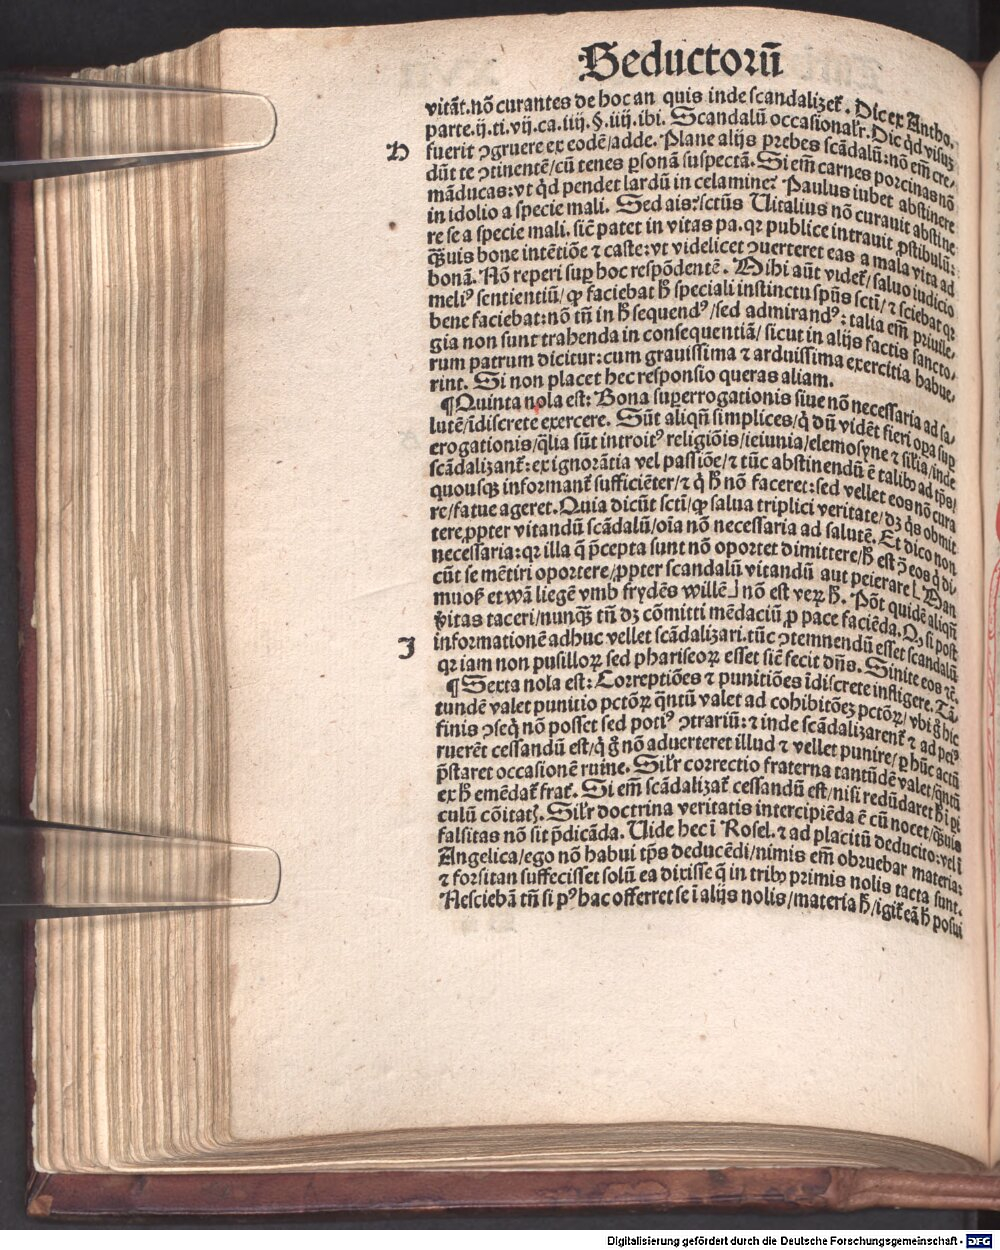 Seductorū
vitāt. nō curantes de hoc an quis inde scandalizeť. Dic ex Antho.
parte.ij.ti.vij.ca.iiij.§.iiij.ibi. Scandalū occasional'r. Dic q̇d visuꝫ
H
fuerit ↄgruere ex eodē/adde. Plane alijs prebes scādalū: nō em̄ cre/
dūt te ↄtinentē/cū tenes ꝑsonā suspectā. Si em̄ carnes porcinas nō
māducas: vt q̇d pendet lardū in celamine? Paulus iubet abstinere
in idolio a specie mali. Sed ais: sctūs Uitalius nō curauit abstine
re se a specie mali. sic̄ patet in vitas pa. qꝛ publice intrauit ꝓstibulū:
qͣꝫuis bone intētiōe ⁊ caste: vt videlicet ↄuerteret eas a mala vita ad
bonā. Nō reperi suꝑ hoc respōdentē. Mihi aūt videť/saluo iudicio
meliꝰ sentientiū/ꝙ faciebat ħ speciali instinctu spūs scti/⁊ sciebat qꝛ
bene faciebat: nō tn̄ in ħ sequendꝰ/sed admirandꝰ: talia em̄ priuile/
gia non sunt trahenda in consequentiā/sicut in alijs factis sancto/
rum patrum dicitur: cum grauissima ⁊ arduissima exercitia habue/
rint. Si non placet hec responsio queras aliam.
¶Quinta nola est: Bona superrogationis siue nō necessaria ad sa/
lutē/īdiscrete exercere. Sūt aliqn̄ simplices/q̇ dū vidēt fieri oꝑa suꝑ
erogationis/q̄lia sūt introitꝰ religiōis/ieiunia/elemosyne ⁊ sil'ia/inde
scādalizanť: ex ignorātia vel passiōe/⁊ tūc abstinendū ē talibꝫ ad tp̄s/
quousqꝫ informanť sufficiēter/⁊ q̇ ħ nō faceret: sed vellet eos nō cura
re/fatue ageret. Quia dicūt scti/ꝙ salua triplici veritate/dꝫ q̇s obmit
tere ꝓpter vitandū scādalū/oīa nō necessaria ad salutē. Et dico non
necessaria: qꝛ illa q̄ p̄cepta sunt nō oportet dimittere/ħ est ↄ̄ eos q̇ di
cūt se mētiri oportere/ꝓpter scandalū vitandū aut peierare⌊ Man
muoß et wā liegē vmb frydēs willē⌋ nō est verꝝ ħ. Pōt quidē aliqn̄
v̓itas taceri/nunqͣꝫ tn̄ dꝫ cōmitti mēdaciū ꝓ pace faciēda. Qꝫ si post
J
informationē adhuc vellet scādalizari. tūc ↄtemnendū esset scandalū
qꝛ iam non pusilloꝝ sed phariseoꝝ esset sic̄ fecit dn̄s. Sinite eos ⁊c̄.
¶Sexta nola est: Correptiōes ⁊ punitiōes īdiscrete infligere. Tā/
tundē valet punitio pctōꝝ qͣntū valet ad cohibitōeꝫ pctōꝝ/vbi g̊ hic
finis ↄseq̇ nō posset sed potiꝰ ↄtrariū: ⁊ inde scādalizarenť ⁊ ad peiꝰ
ruerēt cessandū est/q̇ g̊ nō aduerteret illud ⁊ vellet punire/ꝑ hūc actū
p̄staret occasionē ruine. Sil'r correctio fraterna tantūdē valet/qͣntū
ex ħ emēdať frať. Si em̄ scādalizať cessandū est/nisi redūdaret ħ ī ꝑi
culū cōitatꝭ. Sil'r doctrina veritatis intercipiēda ē cū nocet/qͣꝫuis
falsitas nō sit p̄dicāda. Uide hec ī Rosel. ⁊ ad placitū deducito: vel ī
Angelica/ego nō habui tp̄s deducēdi/nimis em̄ obruebar materia:
⁊ forsitan suffecisset solū ea dixisse q̄ in tribꝫ primis nolis tacta sunt.
Nesciebā tn̄ si pꝰ hac offerret se ī alijs nolis/materia ħ/igiť eā ħ posui
Digitalisierung gefördert durch die Deutsche Forschungsgemeinschaft - DFG